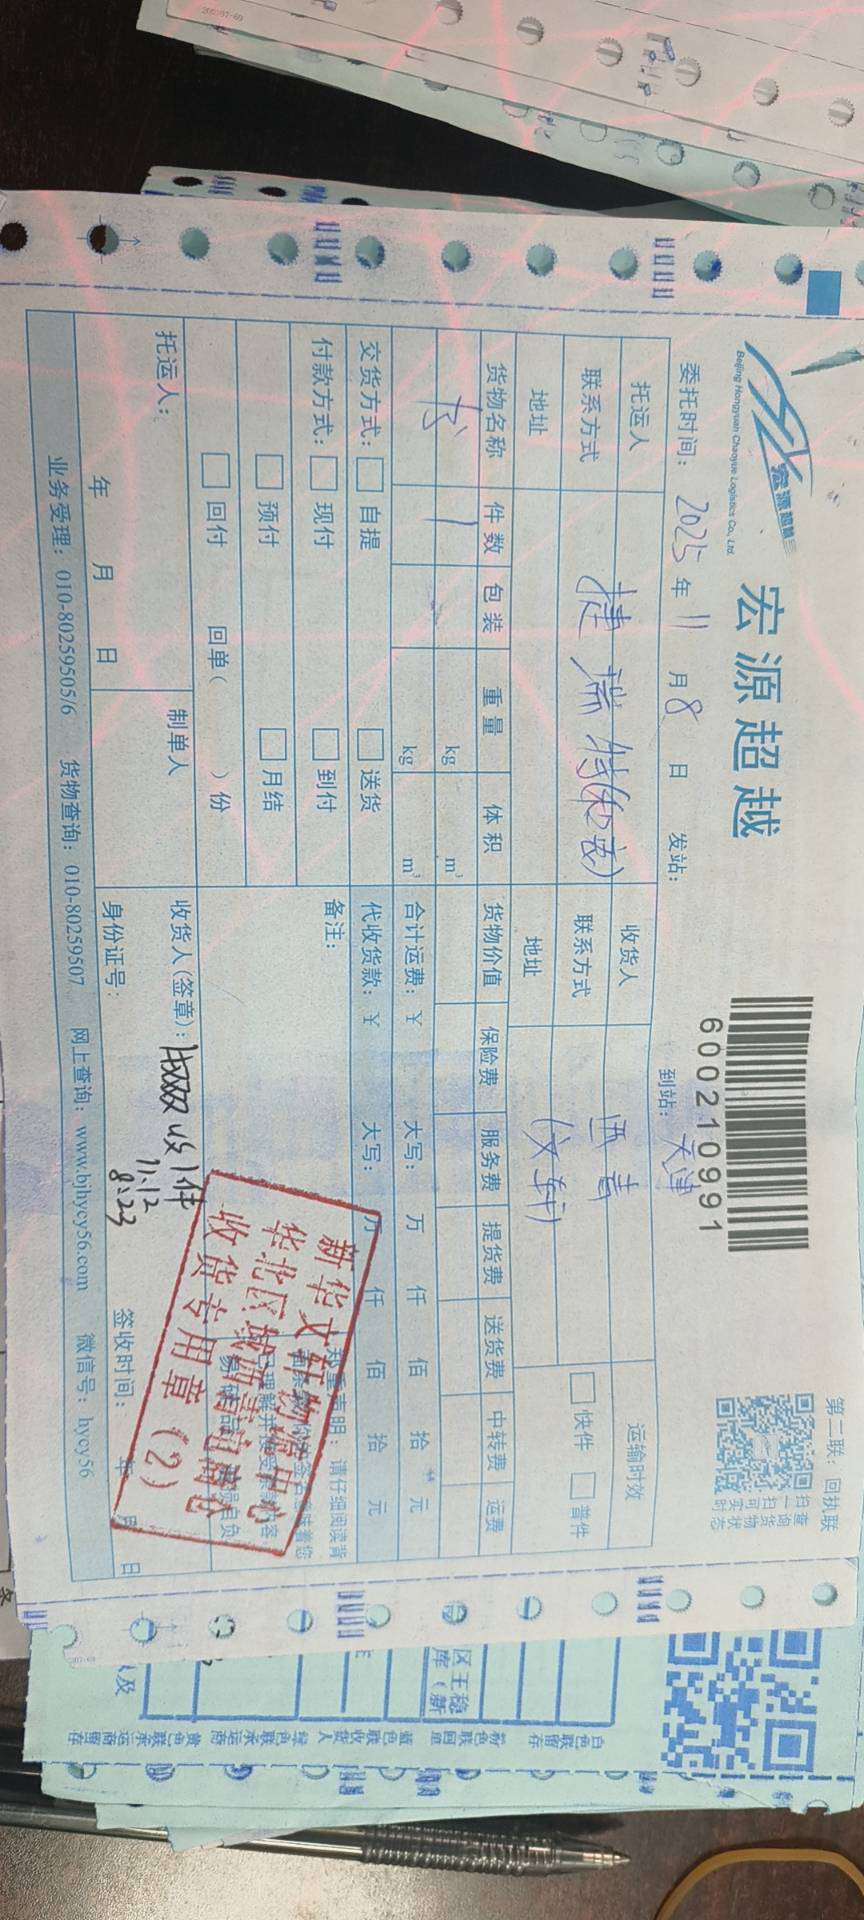 宏源超越
Beijing Hongyuan Chaoyue Logistics Co., Ltd.
宏源超越
600210991
第二联：回执联
扫查
一询
扫货
可物
实状
时态
委托时间：2025年11月8日 发站： 到站：天津
托运人 收货人 运输时效
联系方式 捷瑞特 联系方式 西青 快件 普件
地址 地址 (文轩)
货物名称 件数 包装 重量 体积 货物价值 保险费 服务费 提货费 送货费 中转费 运费
书 1 kg m³
kg m³ 合计运费：¥ 大写： 万 仟 佰 拾 元
交货方式： 自提 送货 代收货款：¥ 大写： 万 仟 佰 拾 元
付款方式： 现付 到付 备注：
预付 月结
回付 回单( )份
郑重声明：请仔细阅读背
新华文轩物流中心
华北区域
收货专用章（2）
托运人： 制单人 收货人(签章)： 收1件
11.12
8:23
年 月 日 身份证号： 签收时间： 年 月 日
业务受理：010-80259505/6 货物查询：010-80259507 网上查询：www.bjhycy56.com 微信号：hycy56
区王稳
库（新